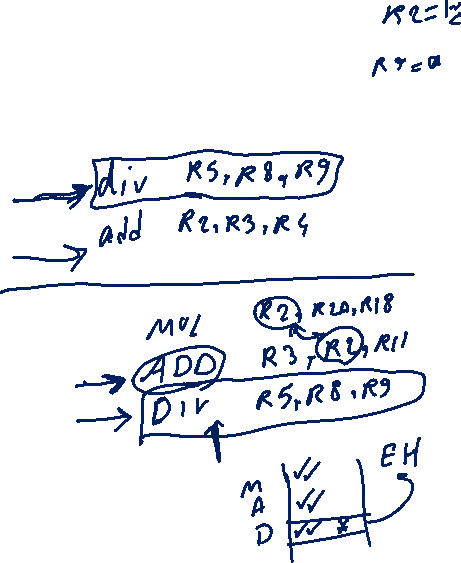 div R5, R8, R9
add R2, R3, R4
MUL R2, R20, R18
ADD R3, R2, R11
Div R5, R8, R9
EH
M
A
D